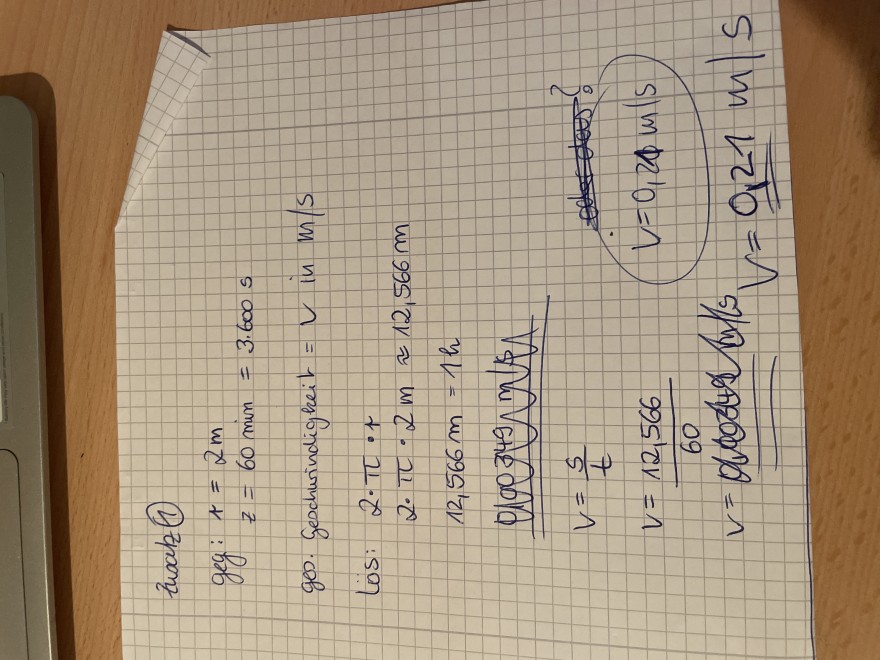 Zusatz ①
geg: r = 2m
z = 60 min = 3.600 s
ges. Geschwindigkeit = v in m/s
Lös: 2·π·r
2·π·2m ≈ 12,566 m
12,566 m = 1h
0,00349 m/s
v = s/t
v = 12,566/60
v = 0,00349 m/s
oder das?
v = 0,21 m/s
v = 0,21 m/s